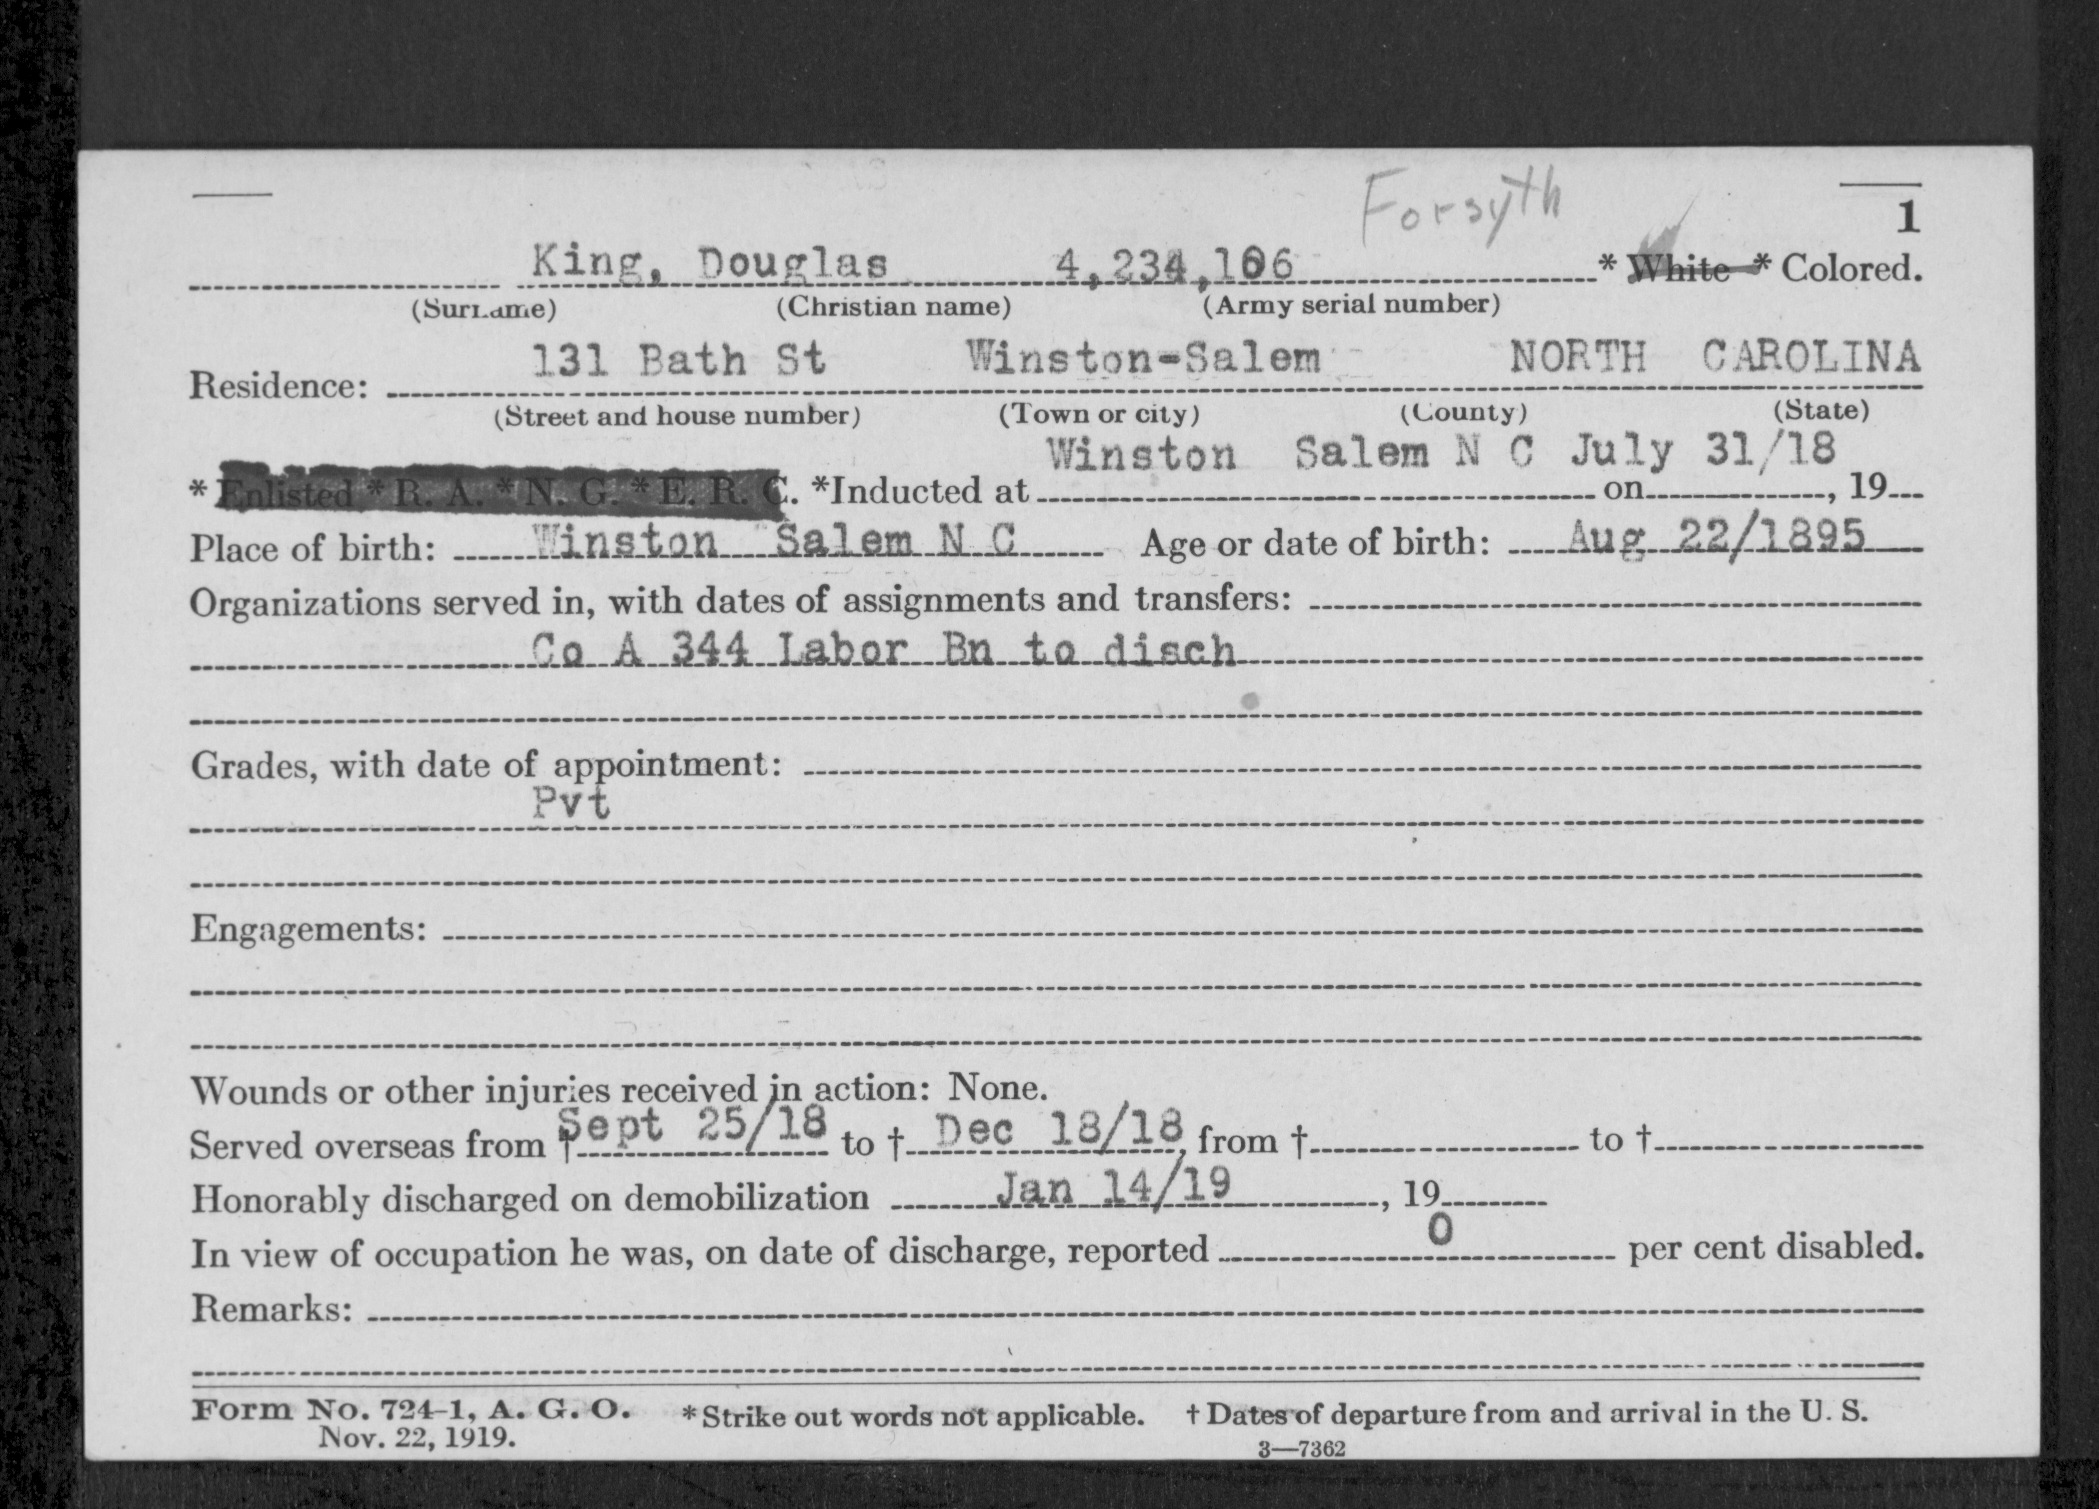 Forsyth
1
King, Douglas 4,234,106 * White * Colored.
(Surname) (Christian name) (Army serial number)
131 Bath St Winston-Salem NORTH CAROLINA
Residence:
(Street and house number) (Town or city) (County) (State)
Winston Salem N C July 31/18
* Enlisted * R. A. * N. G. * E. R. C. *Inducted at on , 19
Place of birth: Winston Salem N C Age or date of birth: Aug 22/1895
Organizations served in, with dates of assignments and transfers:
Co A 344 Labor Bn to disch
Grades, with date of appointment:
Pvt
Engagements:
Wounds or other injuries received in action: None.
Served overseas from † Sept 25/18 to † Dec 18/18, from † to †
Honorably discharged on demobilization Jan 14/19, 19
In view of occupation he was, on date of discharge, reported 0 per cent disabled.
Remarks:
Form No. 724-1, A. G. O. * Strike out words not applicable. † Dates of departure from and arrival in the U. S.
Nov. 22, 1919. 3—7362